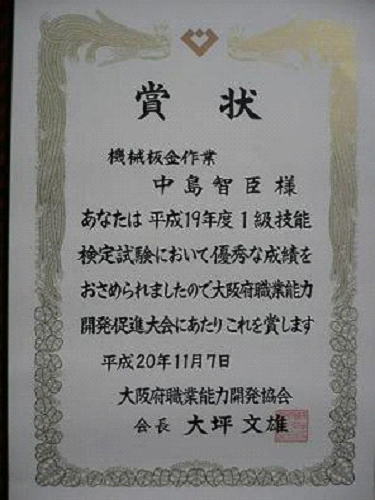 賞状
機械板金作業
中島智臣様
あなたは平成19年度1級技能
検定試験において優秀な成績を
おさめられましたので大阪府職業能力
開発促進大会にあたりこれを賞します
平成20年11月7日
大阪府職業能力開発協会
会長 大坪文雄